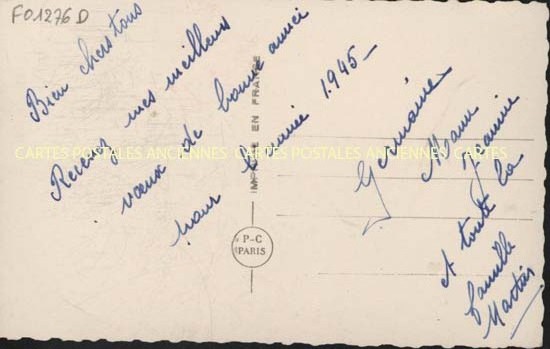 F01276D
Bien chers tous
Recevez mes meilleurs
vœux de bonne année
pour l'année 1945-
Germaine
A toute la
famille
Martin
IMPRIMÉ EN FRANCE
P-C
PARIS
CARTES POSTALES ANCIENNES CARTES POSTALES ANCIENNES CARTES